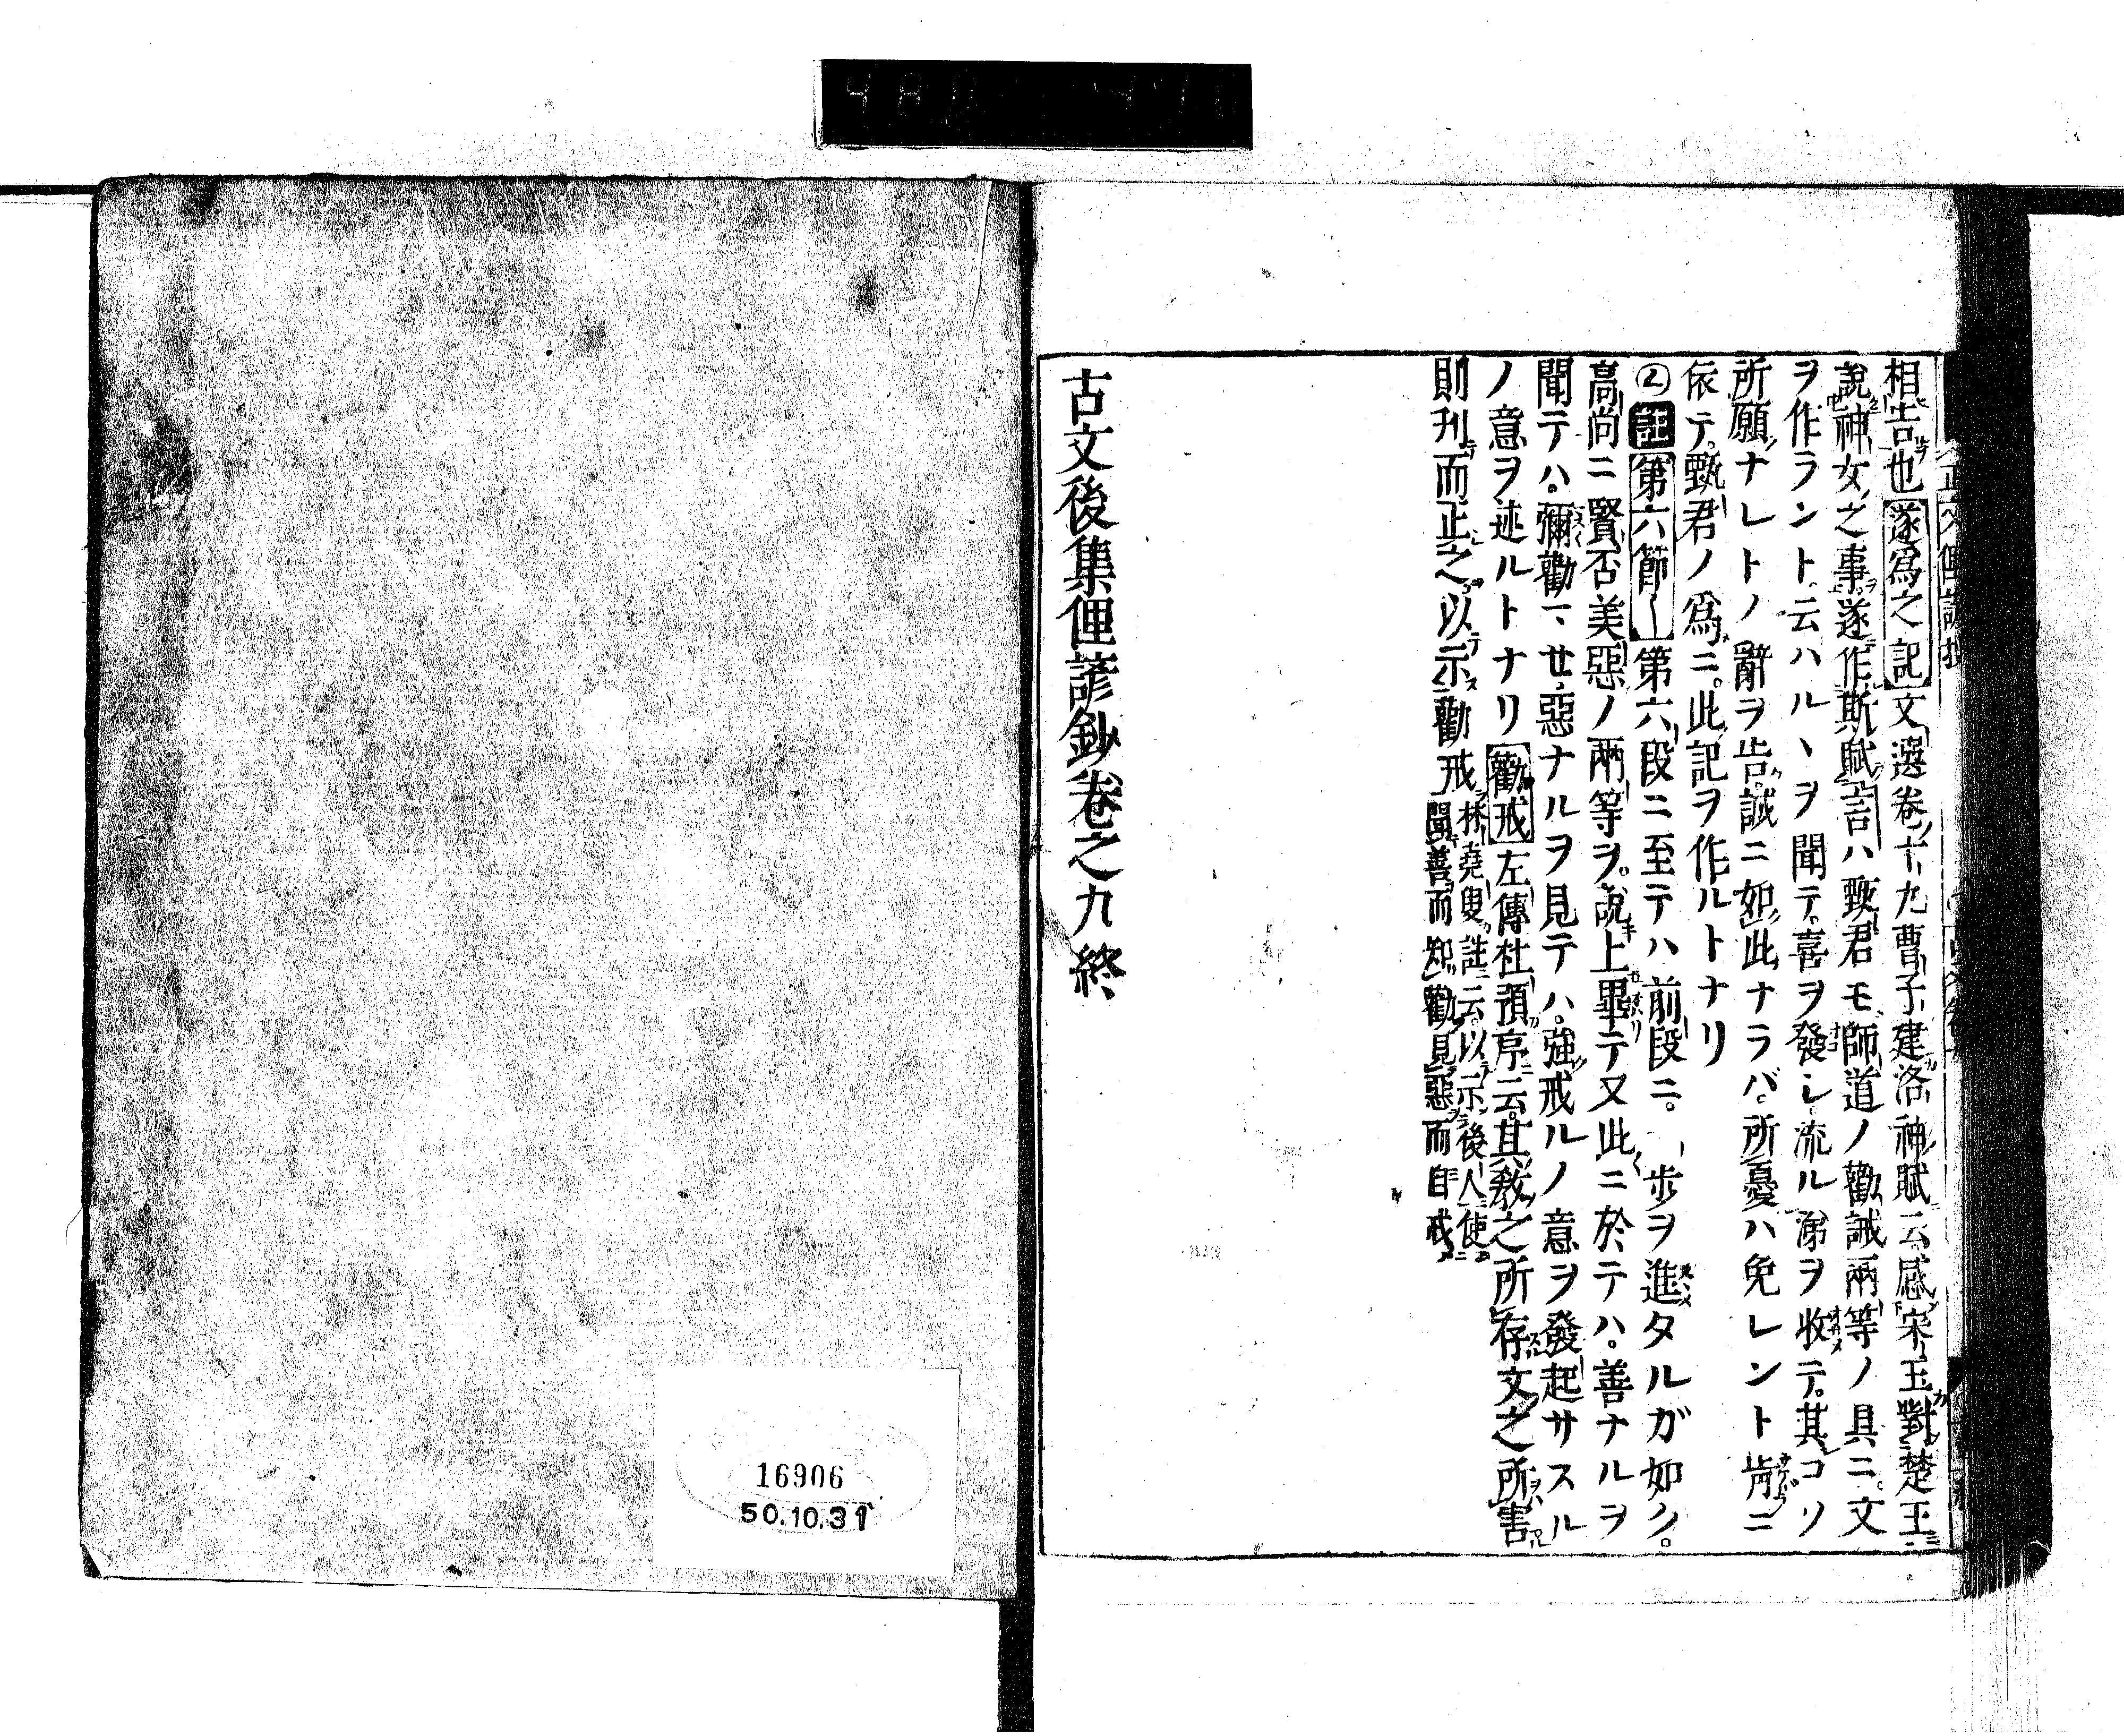 相告也遂爲之記文選卷十九曹子建洛神賦云感宋玉對楚王
說神女之事遂作斯賦言ハ甄君モ師道ノ勸誡兩等ノ具ニ文
ヲ作ラント云ハルヽヲ聞テ喜ヲ發シ流ル涕ヲ收テ其コソ
所願ナレトノ辭ヲ告誠ニ如此ナラバ所憂ハ免レント肯ニ
依テ甄君ノ爲ニ此記ヲ作ルトナリ
②註第六節第六段ニ至テハ前段ニ一歩ヲ進タルガ如ク
高尚ニ賢否美惡ノ兩等ヲ說上畢テ又此ニ於テハ善ナルヲ
聞テハ彌勸マセ惡ナルヲ見テハ強戒ルノ意ヲ發起サスル
ノ意ヲ述ルトナリ勸戒左傳杜預序云其敎之所存文之所害
則刊而正之以示勸戒林堯叟註云以示後人使
聞善而知勸見惡而自戒
古文後集俚諺鈔卷之九終
16906
50.10.31